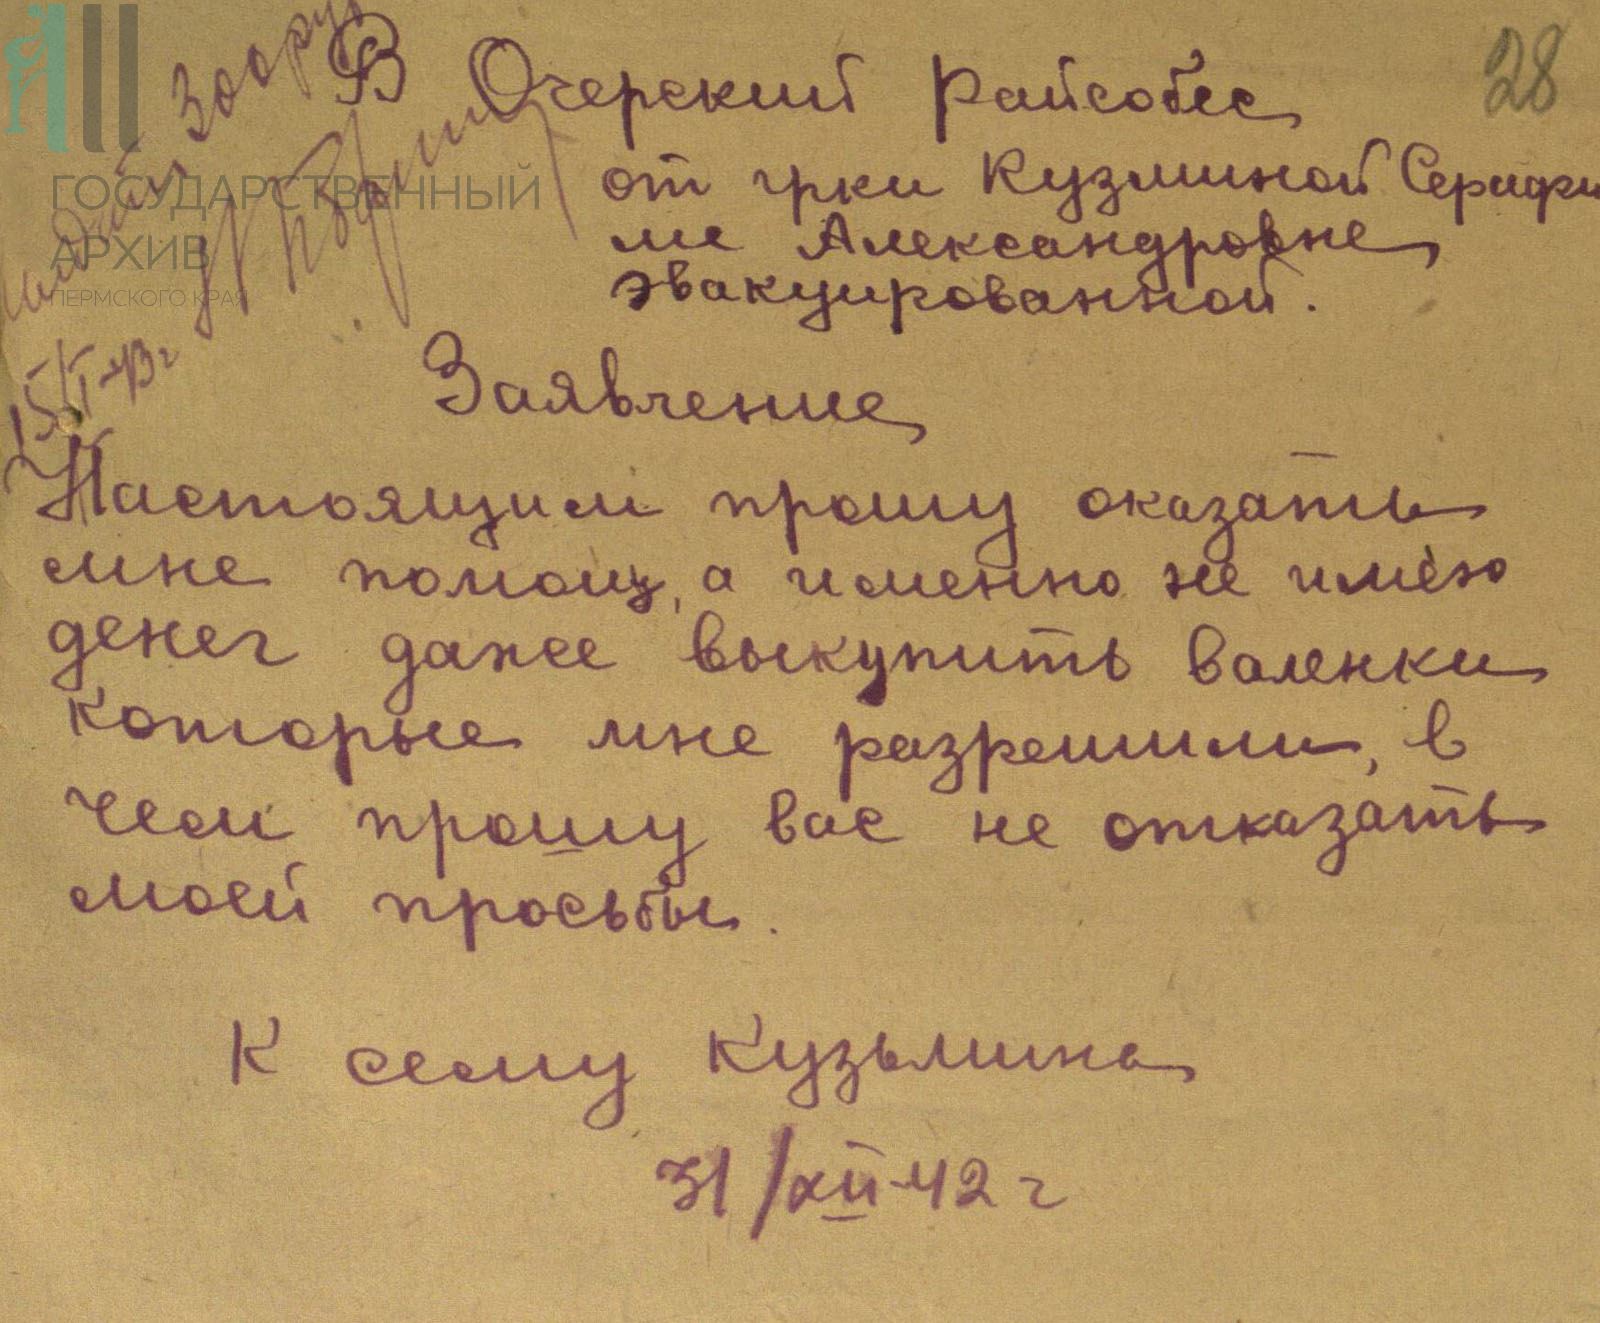 28
В Очерский Райсобес
от грки Кузминой Серафи
ме Александровне
эвакуированной.
ГОСУДАРСТВЕННЫЙ
АРХИВ
ПЕРМСКОГО КРАЯ
15/I-43г
Заявление
Настоящим прошу оказать
мне помощ, а именно не имею
денег даже выкупить валенки
которые мне разрешили, в
чем прошу вас не отказать
моей просьбы.
К сему Кузьмина
31/XII-42 г